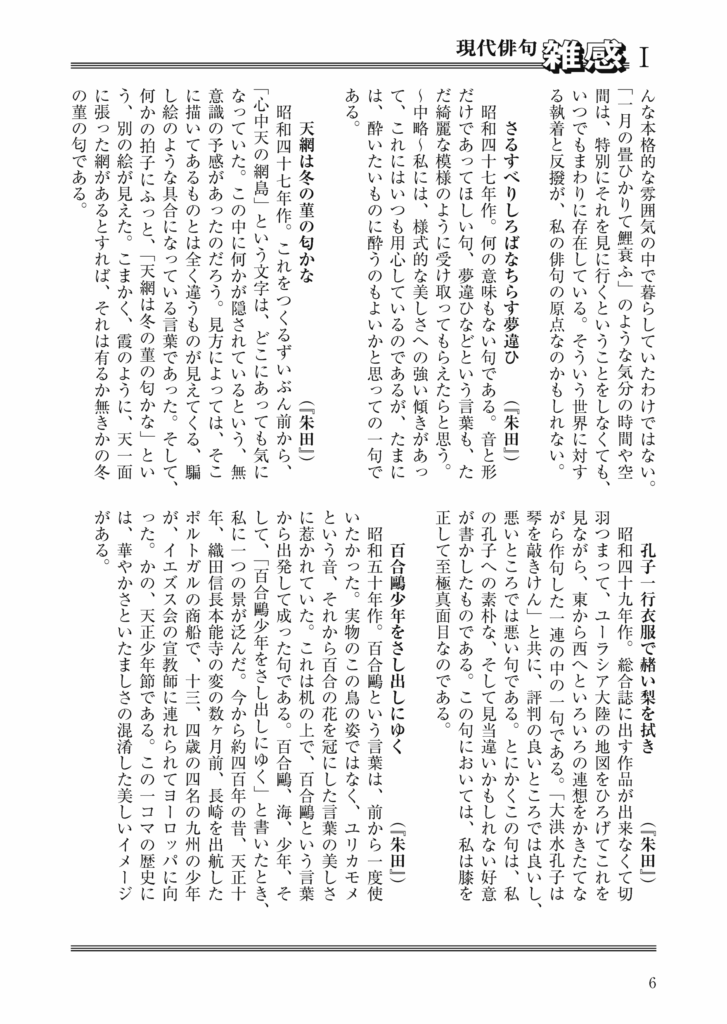 現代俳句 雑感 Ⅰ
んな本格的な雰囲気の中で暮らしていたわけではない。
「一月の畳ひかりて鯉衰ふ」のような気分の時間や空
間は、特別にそれを見に行くということをしなくても、
いつでもまわりに存在している。そういう世界に対す
る執着と反撥が、私の俳句の原点なのかもしれない。
さるすべりしろばなちらす夢違ひ　（『朱田』）
昭和四十七年作。何の意味もない句である。音と形
だけであってほしい句、夢違ひなどという言葉も、た
だ綺麗な模様のように受け取ってもらえたらと思う。
～中略～私には、様式的な美しさへの強い傾きがあっ
て、これにはいつも用心しているのであるが、たまに
は、酔いたいものに酔うのもよいかと思っての一句で
ある。
天網は冬の菫の匂かな　（『朱田』）
昭和四十七年作。これをつくるずいぶん前から、
「心中天の網島」という文字は、どこにあっても気に
なっていた。この中に何かが隠されているという、無
意識の予感があったのだろう。見方によっては、そこ
に描いてあるものとは全く違うものが見えてくる、騙
し絵のような具合になっている言葉であった。そして、
何かの拍子にふっと、「天網は冬の菫の匂かな」とい
う、別の絵が見えた。こまかく、霞のように、天一面
に張った網があるとすれば、それは有るか無きかの冬
の菫の匂である。
孔子一行衣服で赭い梨を拭き　（『朱田』）
昭和四十九年作。総合誌に出す作品が出来なくて切
羽つまって、ユーラシア大陸の地図をひろげてこれを
見ながら、東から西へといろいろの連想をかきたてな
がら作句した一連の中の一句である。「大洪水孔子は
琴を敲きけん」と共に、評判の良いところでは良いし、
悪いところでは悪い句である。とにかくこの句は、私
の孔子への素朴な、そして見当違いかもしれない好意
が書かしたものである。この句においては、私は膝を
正して至極真面目なのである。
百合鷗少年をさし出しにゆく　（『朱田』）
昭和五十年作。百合鷗という言葉は、前から一度使
いたかった。実物のこの鳥の姿ではなく、ユリカモメ
という音、それから百合の花を冠にした言葉の美しさ
に惹かれていた。これは机の上で、百合鷗という言葉
から出発して成った句である。百合鷗、海、少年、そ
して、「百合鷗少年をさし出しにゆく」と書いたとき、
私に一つの景が泛んだ。今から約四百年の昔、天正十
年、織田信長本能寺の変の数ヶ月前、長崎を出航した
ポルトガルの商船で、十三、四歳の四名の九州の少年
が、イエズス会の宣教師に連れられてヨーロッパに向
った。かの、天正少年節である。この一コマの歴史に
は、華やかさといたましさの混淆した美しいイメージ
がある。
6